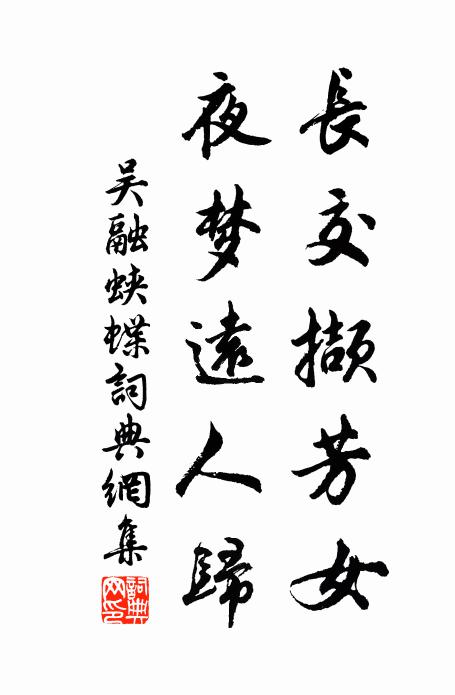 長交擷芳女
夜梦遠人歸
吴融蛱蝶詞典網集
詞典网印